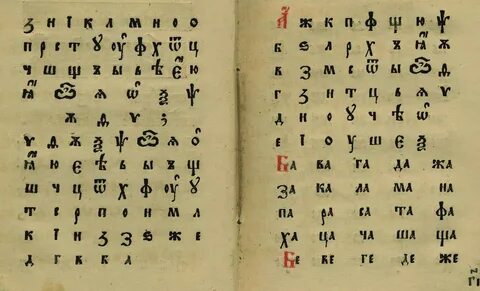 ꙁ и і к л м н о ѻ
п р с т ꙋ оу ф х ѿ ц
ч ш щ ъ ы ь ѣ ѥ ю
ꙗ ѽ ѧ ѡ ѯ ѱ
ѫ ѳ ѵ ;
ѵ ѳ ѫ ѯ ѱ ѽ ѧ ѻ
ꙗ ю є ѣ ь ы ъ щ
ш ч ц ѿ х ф оу ꙋ
т с р п о н м л
к і и ꙁ з ѕ ж е
д г в б а
а ж к п ф щ ю ѱ
б ѕ л р х ъ ꙗ ѫ
в з м с ѿ ы ѽ ѳ
г ꙁ н т ц ь ѧ ѵ
д и о ꙋ ч ѣ ѡ
е і ѻ у ш є ѯ
Ба ва га да жа
за ка ла ма на
па ра са та фа
ха ца ча ша ща
Бе ве ге де же